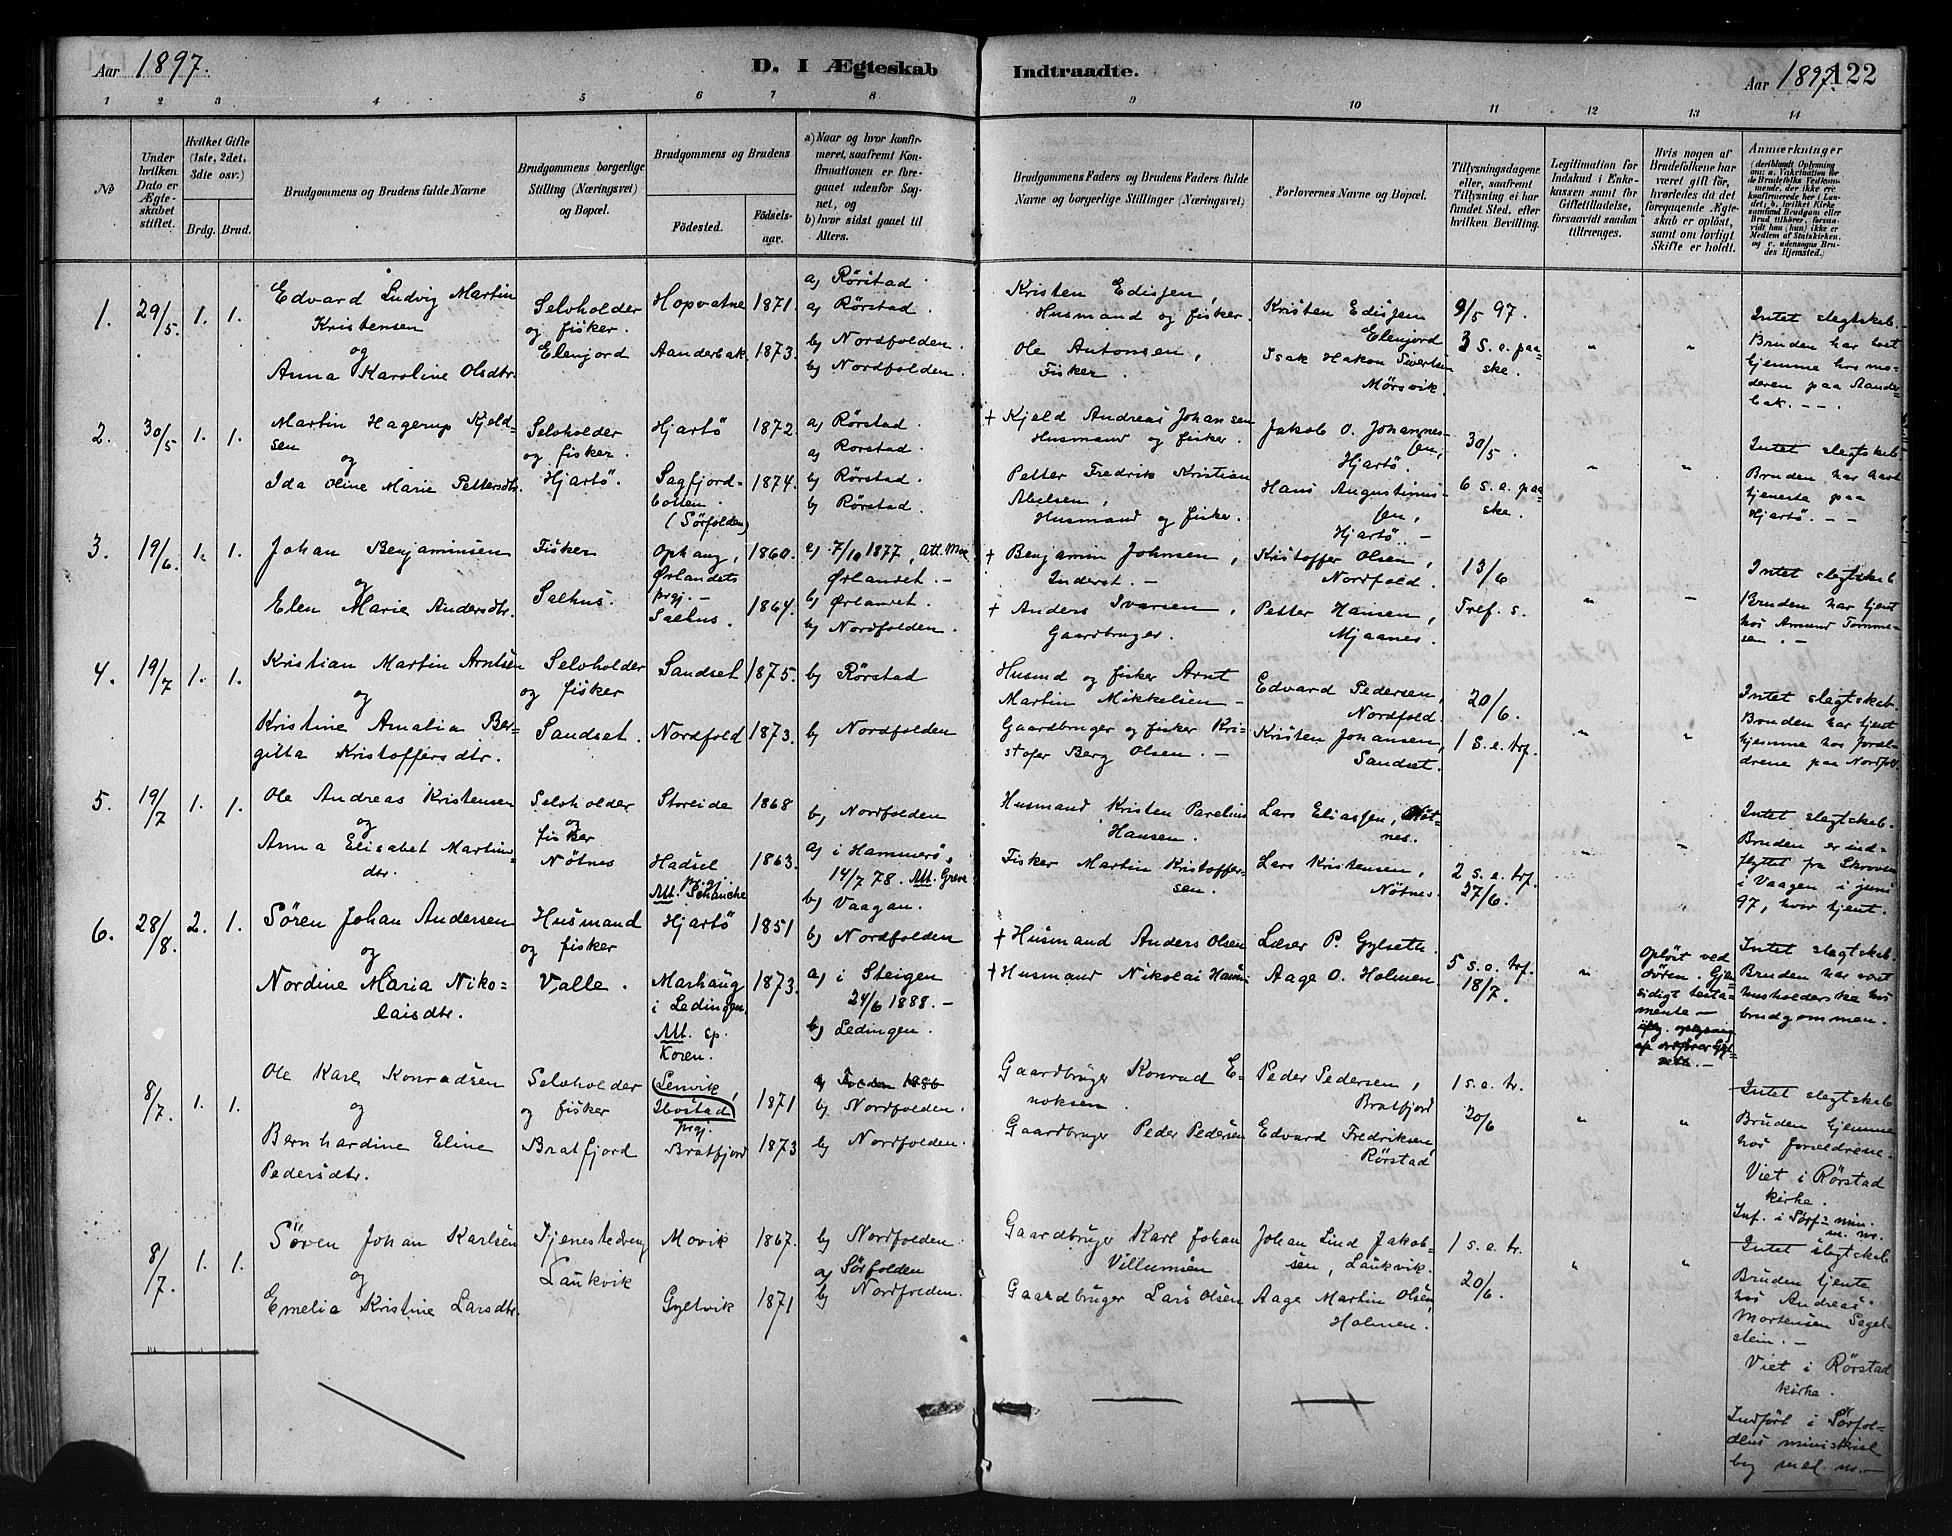 Aar 1897.
D. I Ægteskab Indtraadte.
Aar 1897. 122
1 2 3 4 5 6 7 8 9 10 11 12 13 14
No
Under hvilken Dato er Ægteskabet stiftet.
Hvilket Gifte (1ste, 2det, 3die osv.)
Brdg. Brud.
Brudgommens og Brudens fulde Navne
Brudgommens borgerlige Stilling (Næringsvei) og Bopæl.
Brudgommens og Brudens
Fødested. Fødsels-aar.
a) Naar og hvor konfirmeret, saafremt Konfirmationen er foregaaet udenfor Sognet, og
b) hvor sidst gaaet til Alters.
Brudgommens Faders og Brudens Faders fulde Navne og borgerlige Stillinger (Næringsvei)
Forlovernes Navne og Bopæl.
Tillysningsdagene eller, saafremt Tillysning ei har fundet Sted, efter hvilken Bevilling.
Legitimation for Indskud i Enkekassen samt for Giftetilladelse, forsaavidt saadan tiltrænges.
Hvis nogen af Brudefolkene har været gift før, hvorledes da det foregaaende Ægteskab er opløst, samt om lovligt Skifte er holdt.
Anmærkninger
1. 29/5. 1. 1.
Edvard Ludvig Martin
Kristensen
og
Anna Karoline Olsdtr.
Selvholder
og fisker.
Elenjord
Hopvatne 1871.
Aanderbak 1873.
a) Rørstad.
a) Rørstad.
b) Nordfolden.
b) Nordfolden.
Kristen Edisjen,
Husmand og fisker.
Ole Antonsen,
Fisker.
Kristen Edisjen
Elenjord
Isak Hakon Sivertsen
Mørsvik.
9/5 97.
3 s. e. paa-
ske.
" "
Intet slegtskab.
Bruden har havt
hjemme hos mo-
deren paa Aander
bak. - -.
2. 30/5 1. 1.
Martin Hagerup Kjeld-
sen
og
Ida Oline Marie Pettersdtr.
Selvholder
og fisker.
Hjartö.
Hjartö 1872
Sagfjord-
botten
(Sørfolden) 1874.
a) Rørstad.
a) Rørstad.
b) Rørstad.
b) Rørstad.
+ Kjeld Andreas Johansen
Husmand og fisker.
Petter Fredrik Kristian
Abelsen,
Husmand og fisker.
Jakob O. Johannes-
sen,
Hjartö.
Hans Augustinus-
sen,
Hjartö. -
30/5.
6 s. e. paa-
ske.
" "
Intet slegtskab
Bruden har havt
tjeneste paa
Hjartö. - -
3. 19/6 1. 1.
Johan Benjaminsen
og
Elen Marie Andersdtr.
Fisker
Salhus.
Ophaug,
Ørlandets
prgj. - 1860.
Salhus. 1864.
a) 7/10 1877, att. Moe
Ørlandet. -
b) Ørlandet.
b) Nordfolden.
+ Benjamin Johnsen,
Inderst. -
+ Anders Ivarsen,
Gaardbruger.
Kristoffer Olsen,
Nordfold.
Petter Hansen,
Mjaanes.
13/6
Tref. s.
" -
Intet slegtskab
Bruden har tjent
hos Amund Tomme-
sen. -
4. 19/7 1. 1.
Kristian Martin Arntsen
og
Kristine Amalia Ber-
gitta Kristoffersdtr.
Selvholder
og fisker
Sandset.
Sandset 1875.
Nordfold 1873.
b) Rørstad
b) Nordfolden
Husmd og fisker Arnt
Martin Mikkelsen -
Gaardbruger og fisker Kri-
stofer Berg Olsen. -
Edvard Pedersen,
Nordfold.
Kristen Johansen,
Sandset.
20/6.
1 s. e. trf.
" "
Intet slegtskab.
Bruden har tjent
hjemme hos foræl-
drene paa Nordfold.
5. 19/7 1. 1.
Ole Andreas Kristensen
og
Anna Elisabet Martins-
dtr.
Selvholder
og
fisker
Nötnes
Storeide 1868
Hadsel
prgj. 1863.
Att. Schanche
b) Nordfolden
a) i Hammerö,
14/7 78. Att. Greve
b) Vaagan.
Husmand Kristen Parelius
Hansen.
Fisker Martin Kristoffer-
sen.
Lars Eliassen, Nöt-
nes.
Lars Kristensen,
Nötnes
2 s. e. trf.
27/6.
" "
Intet slegtskab.
Bruden er ind-
flyttet fra Skroven
i Vaagen i juni
97, hvor tjent.
6. 28/8. 2. 1.
Søren Johan Andersen
og
Nordine Maria Niko-
laisdtr.
Husmand
og fisker
Valle.
Hjartö 1851
Marhaug
i Lødingen 1873.
Att. sp.
Koren.
b) Nordfolden
a) i Steigen
24/6 1888. -
b) Lødingen.
+ Husmand Anders Olsen
+ Husmand Nikolai Hansen
Læser P. Gylseth.
Aage O. Holmen
5 s. e. trf.
18/7.
"
Opløst ved
døden. Gjen-
sidigt testa-
mente -
Intet slegtskab.
Bruden har vært
husholderske hos
brudgommen.
8/7. 1. 1.
Ole Karl Konradsen
og
Bernhardine Eline
Pedersdtr.
Selvholder
og fisker
Bratfjord
Lenvik,
Ibestad
prgj. 1871
Bratfjord 1873
a) Folden 1886
b) Nordfolden.
b) Nordfolden.
Gaardbruger Konrad E-
noksen.
Gaardbruger Peder Pedersen
Peder Pedersen,
Bratfjord
Edvard Fredriksen,
Rørstad
1 s. e. tr.
20/6
" "
Intet slegtskab
Bruden hjemme
hos forældrene.
Viet i Rørstad
kirke.
Inf. i Sørf. min.
m. no.
8/7. 1. 1.
Søren Johan Karlsen
og
Emelia Kristine Larsdtr.
Tjenestedreng
Laukvik
Movik 1867.
Gyltvik 1871
b) Nordfolden.
a) Sørfolden
b) Nordfolden.
Gaardbruger Karl Johan
Villumsen
Gaardbruger Lars Olsen
Johan Lind Jakob-
sen, Laukvik.
Aage Martin Olsen,
Holmen.
1 s. e. tr.
20/6.
" "
Intet slegtskab
Bruden tjente
hos Andreas
Mortensen Sagel-
stein. -
Viet i Rørstad
kirke.
Indført i Sørfol-
dens ministeriel
bog med no. -